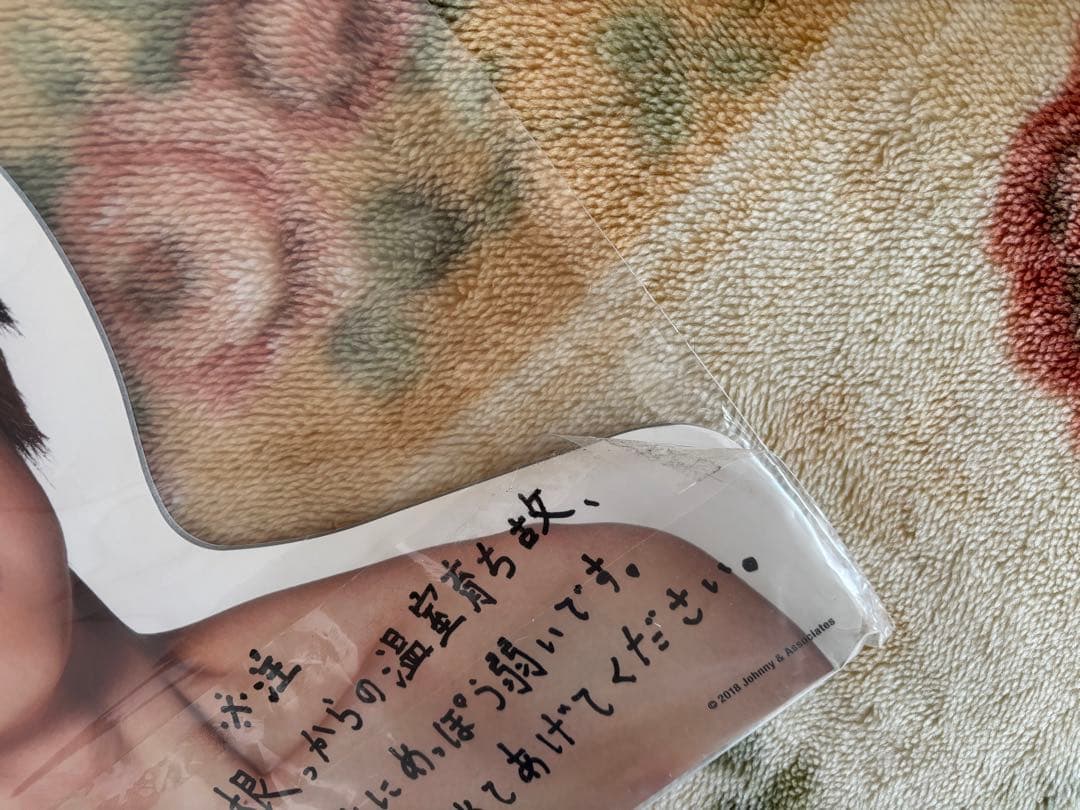 ※注
根っからの温室育ち故、
にめっぽう弱いです。
てあげてください。
© 2018 Johnny & Associates